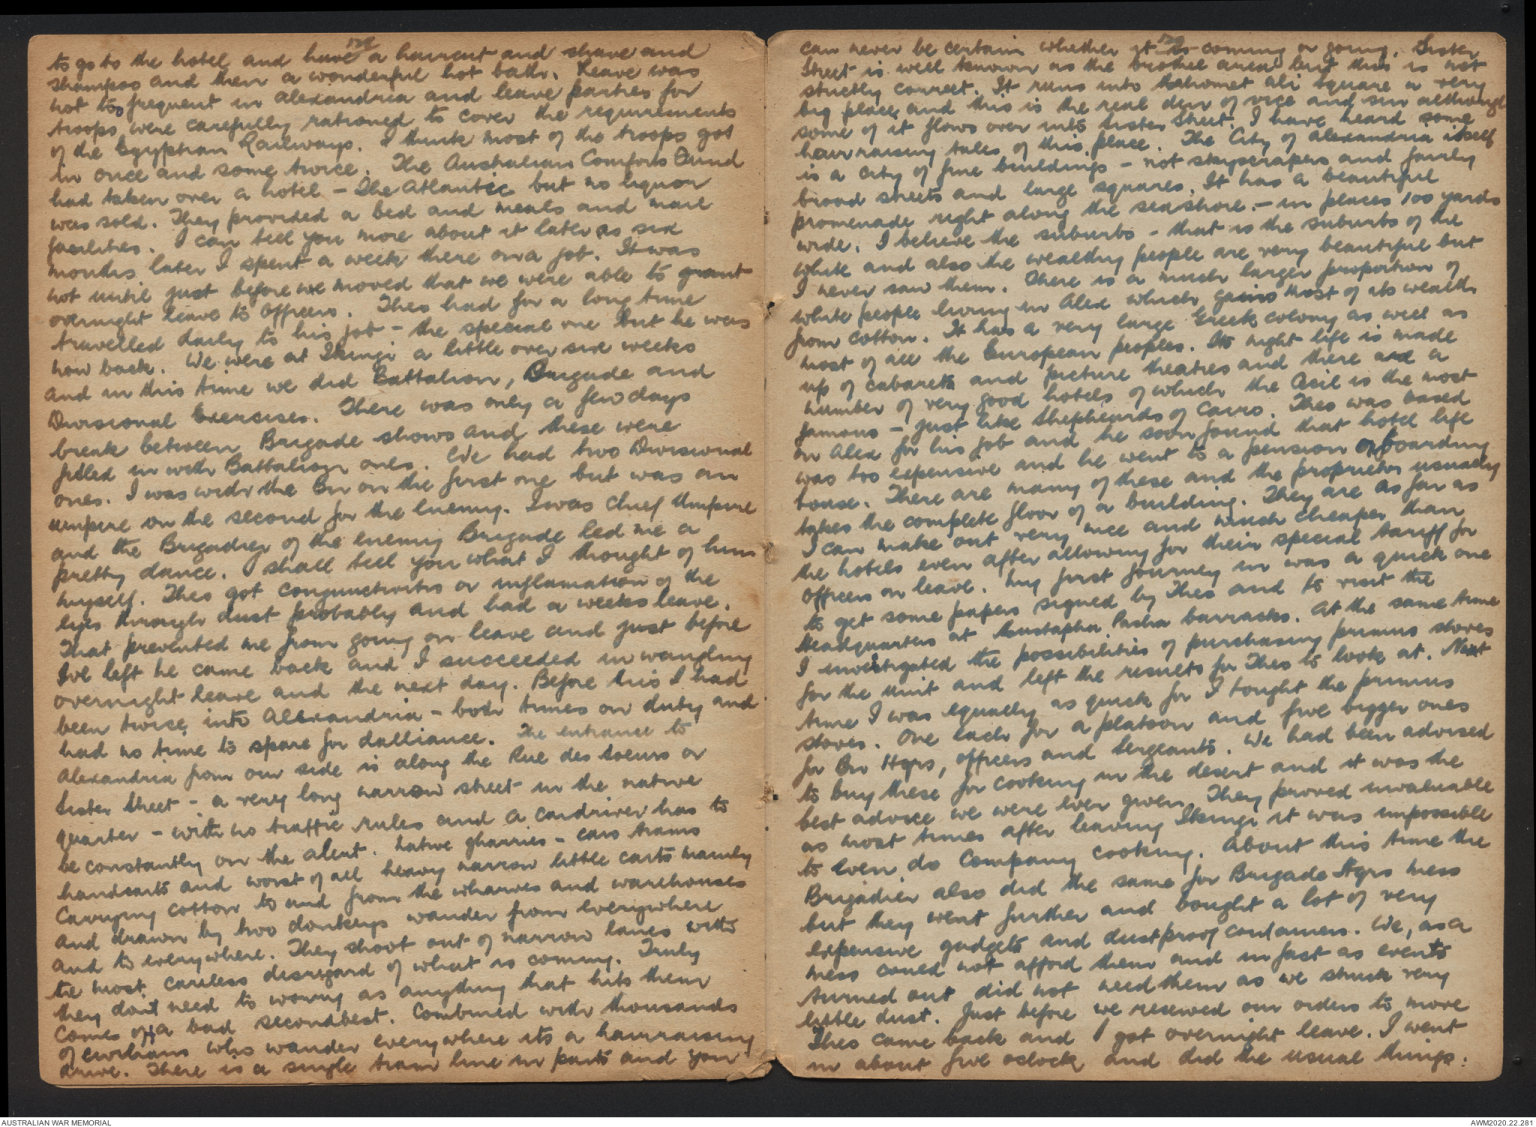 128
to go to the hotel and have a haircut and shave and
shampoo and then a wonderful hot bath. Leave was
not too frequent in Alexandria and leave parties for
troops were carefully rationed to cover the requirements
of the Egyptian Railways. I think most of the troops got
in once and some twice. The Australian Comforts Fund
had taken over a hotel - The Atlantic but no liquor
was sold. They provided a bed and meals and mail
facilities. I can tell you more about it later as six
months later I spent a week there on a job. It was
not until just before we moved that we were able to grant
overnight leave to Officers. Theo had for a long time
travelled daily to his job - the special one but he was
now back. We were at Ikingi a little over six weeks
and in this time we did Battalion, Brigade and
Divisional Exercises. There was only a few days
break between Brigade shows and these were
filled in with Battalion ones. We had two Divisional
ones. I was with the Bn on the first one but was an
umpire on the second for the Enemy. I was Chief Umpire
and the Brigadier of the enemy Brigade led me a
pretty dance. I shall tell you what I thought of him
myself. Theo got conjunctivitis or inflamation of the
eyes through dust probably and had a weeks leave.
That prevented me from going on leave and just before
we left he came back and I succeeded in wangling
overnight leave and the next day. Before this I had
been twice into Alexandria - both times on duty and
had no time to spare for dalliance. The entrance to
Alexandria from our side is along the Rue des Soeurs or
Sister Street - a very long narrow street in the native
quarter - with no traffic rules and a cardriver has to
be constantly on the alert. Native gharries - cars trams
handcarts and worst of all heavy narrow little carts mainly
carrying cotton to and from the wharves and warehouses
and drawn by two donkeys wander from everywhere
and to everywhere. They shoot out of narrow lanes with
the most careless disregard of what is coming. Truly
they don't need to worry as anything that hits them
comes off a bad secondbest. Combined with thousands
of civilians who wander everywhere its a hairraising
drive. There is a single tram line in parts and you
129
can never be certain whether it is coming or going. Sister
Street is well known as the brothel area but this is not
strictly correct. It runs into Mahomet Ali Square a very
big place and this is the real den of vice and sin although
some of it flows over into Sister Street. I have heard some
hairraising tales of this place. The City of Alexandria itself
is a city of fine buildings - not skyscrapers and fairly
broad streets and large squares. It has a beautiful
promenade right along the seashore - in places 100 yards
wide. I believe the suburbs - that is the suburbs of the
white and also the wealthy people are very beautiful but
I never saw them. There is a much larger proportion of
white people living in Alex which gains most of its wealth
from cotton. It has a very large Greek colony as well as
most of all the European peoples. Its night life is made
up of cabarets and picture theatres and there are a
number of very good hotels of which the Cecil is the most
famous - just like Shepheards of Cairo. Theo was based
on Alex for his job and he soon found that hotel life
was too expensive and he went to a pension or boarding
house. There are many of these and the proprietor usually
takes the complete floor of a building. They are as far as
I can make out very nice and much cheaper than
the hotels even after allowing for their special tariff for
Officers on leave. My first journey in was a quick one
to get some papers signed by Theo and to visit the
Headquarters at Mustapha Pasha barracks. At the same time
I investigated the possibilities of purchasing primus stoves
for the unit and left the results for Theo to look at. Next
time I was equally as quick for I bought the primus
stoves. One each for a platoon and five bigger ones
for Bn Hqrs, officers and Sergeants. We had been advised
to buy these for cooking in the desert and it was the
best advice we were ever given. They proved invaluable
as most times after leaving Ikingi it was impossible
to even do Company cooking. About this time the
Brigadier also did the same for Brigade Hqrs mess
but they went further and bought a lot of very
expensive gadgets and dustproof containers. We, as a
mess could not afford them and in fact as events
turned out did not need them as we struck very
little dust. Just before we received our orders to move
Theo came back and I got overnight leave. I went
in about five oclock and did the usual things.
AUSTRALIAN WAR MEMORIAL
AWM2020.22.281